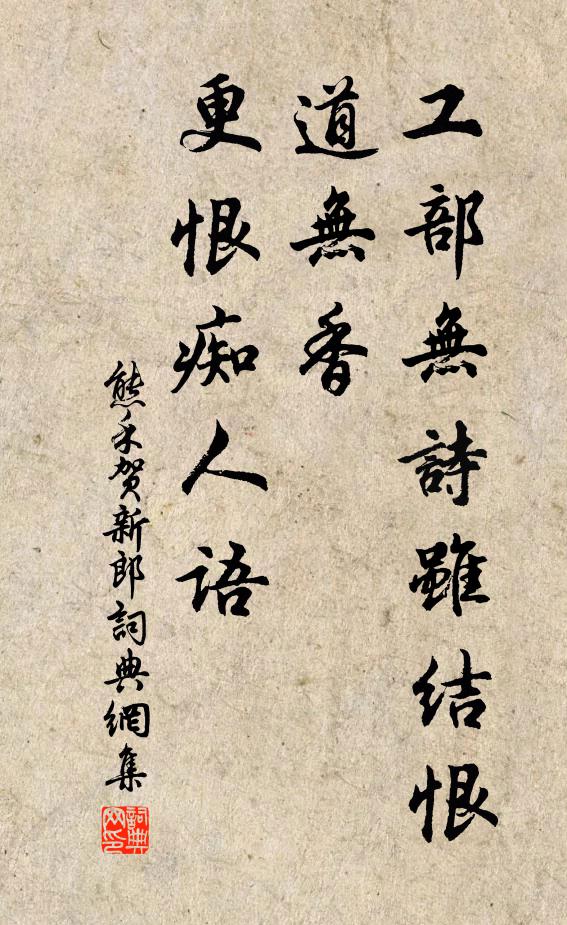 工部無詩雖結恨
道無香
更恨痴人語
熊禾賀新郎詞典網集
詞典
网印